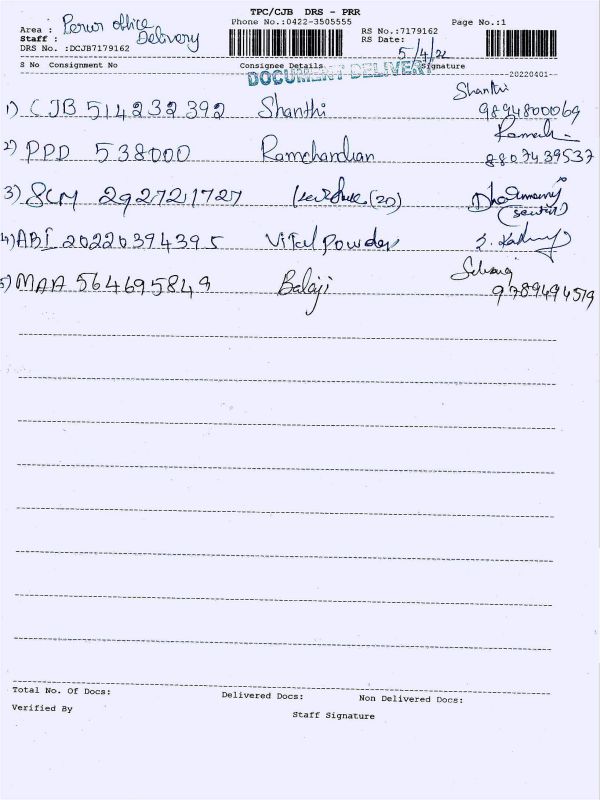 TPC/CJB DRS - PRR
Area : Perur office Delivery
Phone No.:0422-3505555
Page No.:1
Staff :
RS No.:7179162
DRS No. :DCJB7179162
RS Date: 5/4/22
S No Consignment No Consignee Details Signature
DOCUMENT DELIVERY
20220401
1) CJB 514232392 Shanthi Shanthi
9894800069
2) PPD 538000 Ramchandran Ramesh
8807439537
3) SCM 292721727 (20)
4) ABI 20220394395 Vital Powder
5) MAA 564695849 Balaji
9789494519
Total No. Of Docs: Delivered Docs: Non Delivered Docs:
Verified By Staff Signature